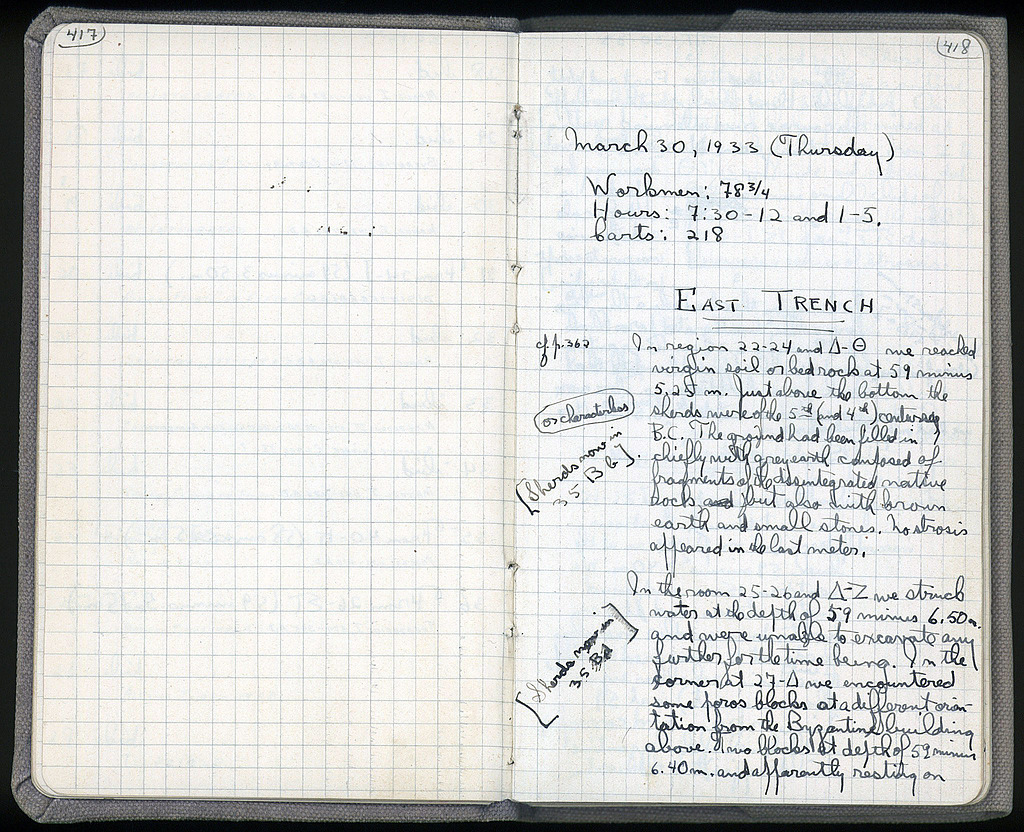 417
418
March 30, 1933 (Thursday)
Workmen: 78 3/4
Hours: 7:30 - 12 and 1-5.
Carts: 218
EAST TRENCH
cf. p. 362
In region 22-24 and Δ-Θ we reached
virgin soil or bedrock at 59 minus
5.25 m. Just above the bottom the
sherds were of the 5th (and 4th) centuries
B.C. The ground had been filled in
chiefly with grey earth composed of
fragments of the disintegrated native
rock, and but also with brown
earth and small stones. No strosis
appeared in the last meter.
[Sherds now in
35 B b].
In the room 25-26 and Δ-Z we struck
water at the depth of 59 minus 6.50 m.
and were unable to excavate any
further for the time being. In the
corner at 27-Δ we encountered
some poros blocks at a different orien-
tation from the Byzantine building
above. Two blocks at depth of 59 minus
6.40 m. and apparently resting on
[Sherds now in
35